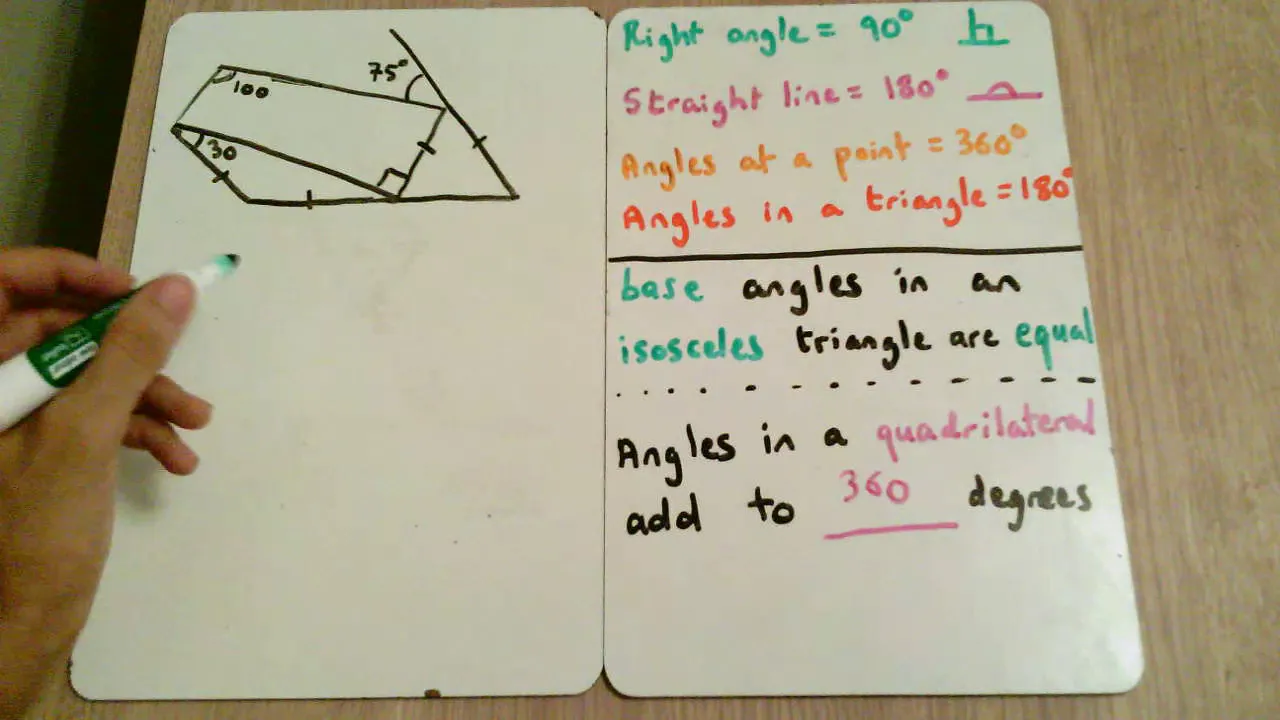 75°
100
30
Right angle = 90°
Straight line = 180°
Angles at a point = 360°
Angles in a triangle = 180°
base angles in an
isosceles triangle are equal
Angles in a quadrilateral
add to 360 degrees